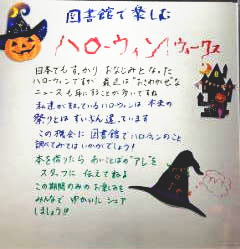 図書館で楽しむ
ハローウィンウィークス
日本でもすっかりおなじみとなった
ハロウィンですが 最近は"おさわがせ"な
ニュースも耳にすることが多いですね
私達が知っているハロウィンは 本来の
祭りとは ずいぶん違っています
この機会に 図書館でハロウィンのこと
調べてみてはいかがでしょう!
本を借りたら あいことばの"アレ"を
スタッフに 伝えてね♪
この期間のみの お楽しみを
みんなで ゆかいに シェア
しましょう!!